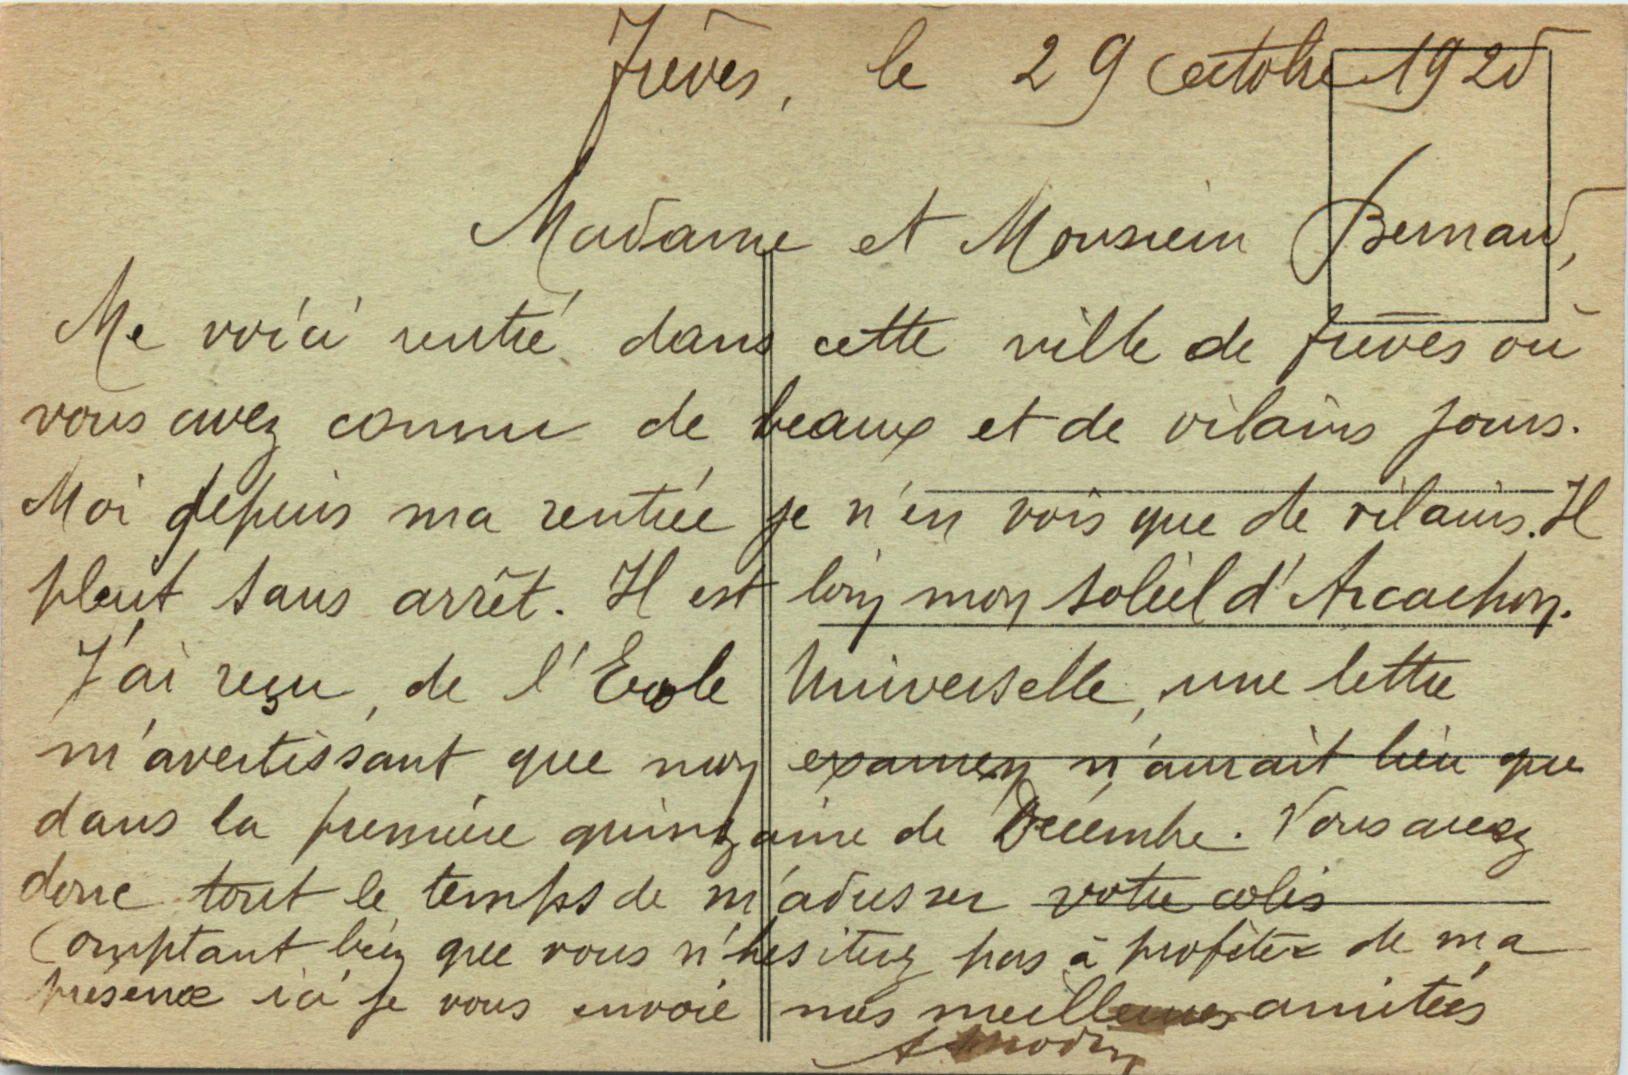 Trèves, le 29 Octobre 1925
Madame et Monsieur Bernard,
Me voici rentré dans cette ville de Trèves où
vous avez connu de beaux et de vilains jours.
Moi depuis ma rentrée je n'en vois que de vilains. Il
pleut sans arrêt. Il est loin mon soleil d'Arcachon.
J'ai reçu, de l'Ecole Universelle, une lettre
m'avertissant que mon examen n'aurait lieu que
dans la première quinzaine de Décembre. Vous avez
donc tout le temps de m'adresser votre colis
Comptant bien que vous n'hésitez pas à profiter de ma
présence ici je vous envoie mes meilleures amitiés